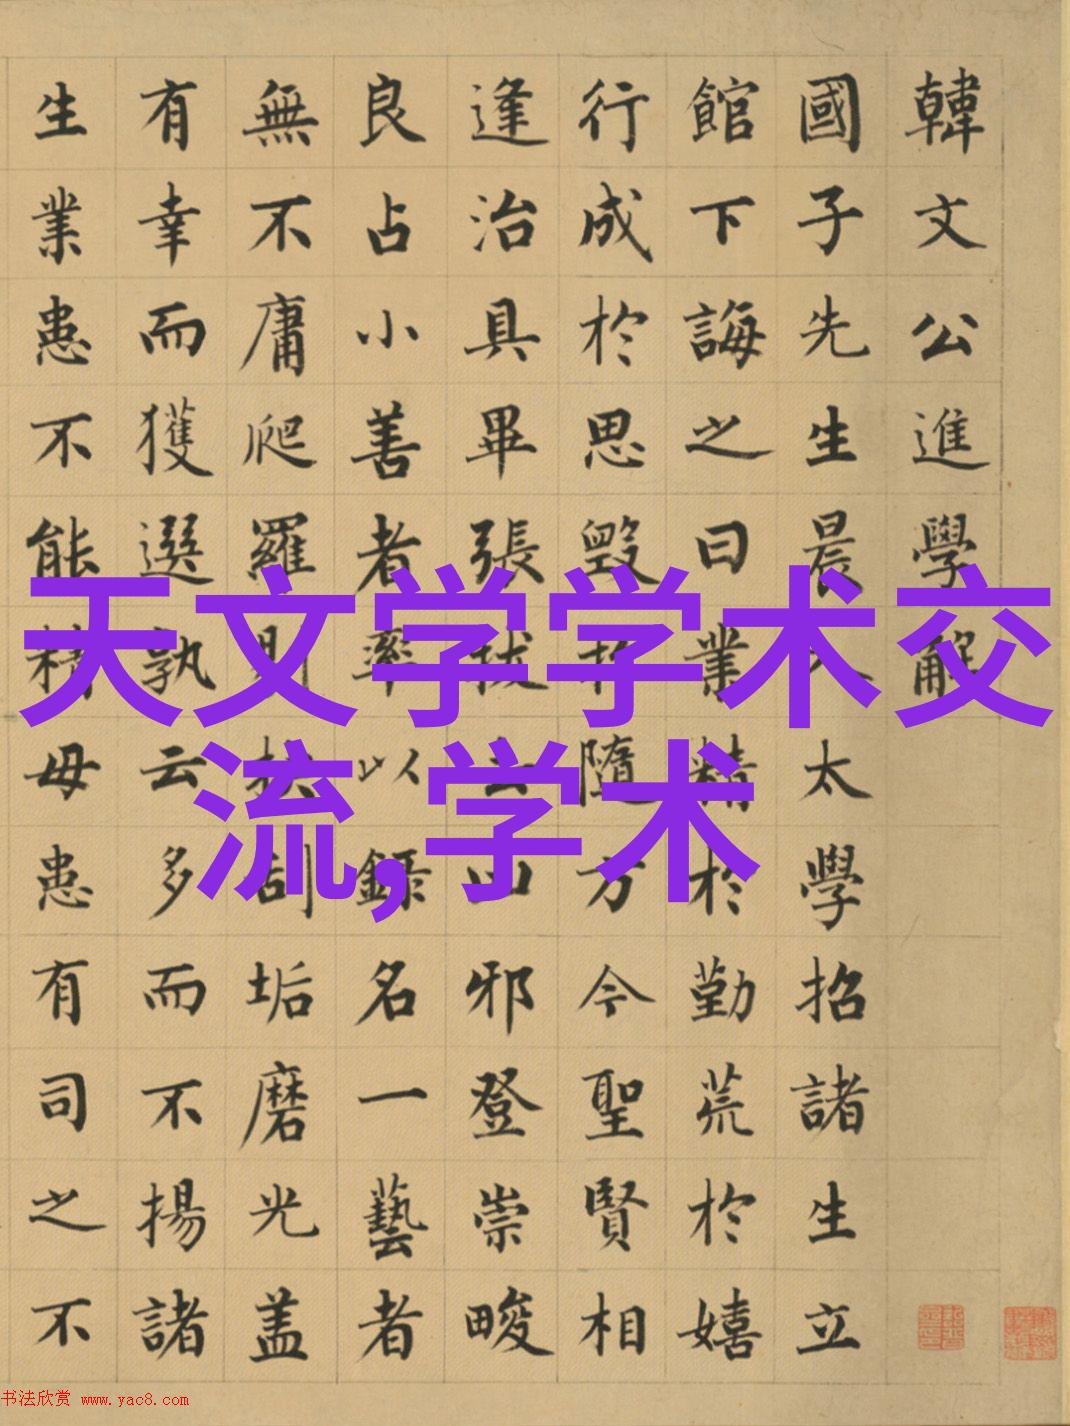 韓文公進學解
國子先生晨入太學招諸生立
館下誨之曰業精於勤荒於嬉
行成於思毀於隨方今聖賢相
逢治具畢張拔去凶邪登崇畯
良占小善者率以錄名一藝者
無不庸爬羅剔抉刮垢磨光盖
有幸而獲選孰云多而不揚諸
生業患不能精毋患有司之不
天文学学术交
流,学术
书法欣赏 www.yac8.com